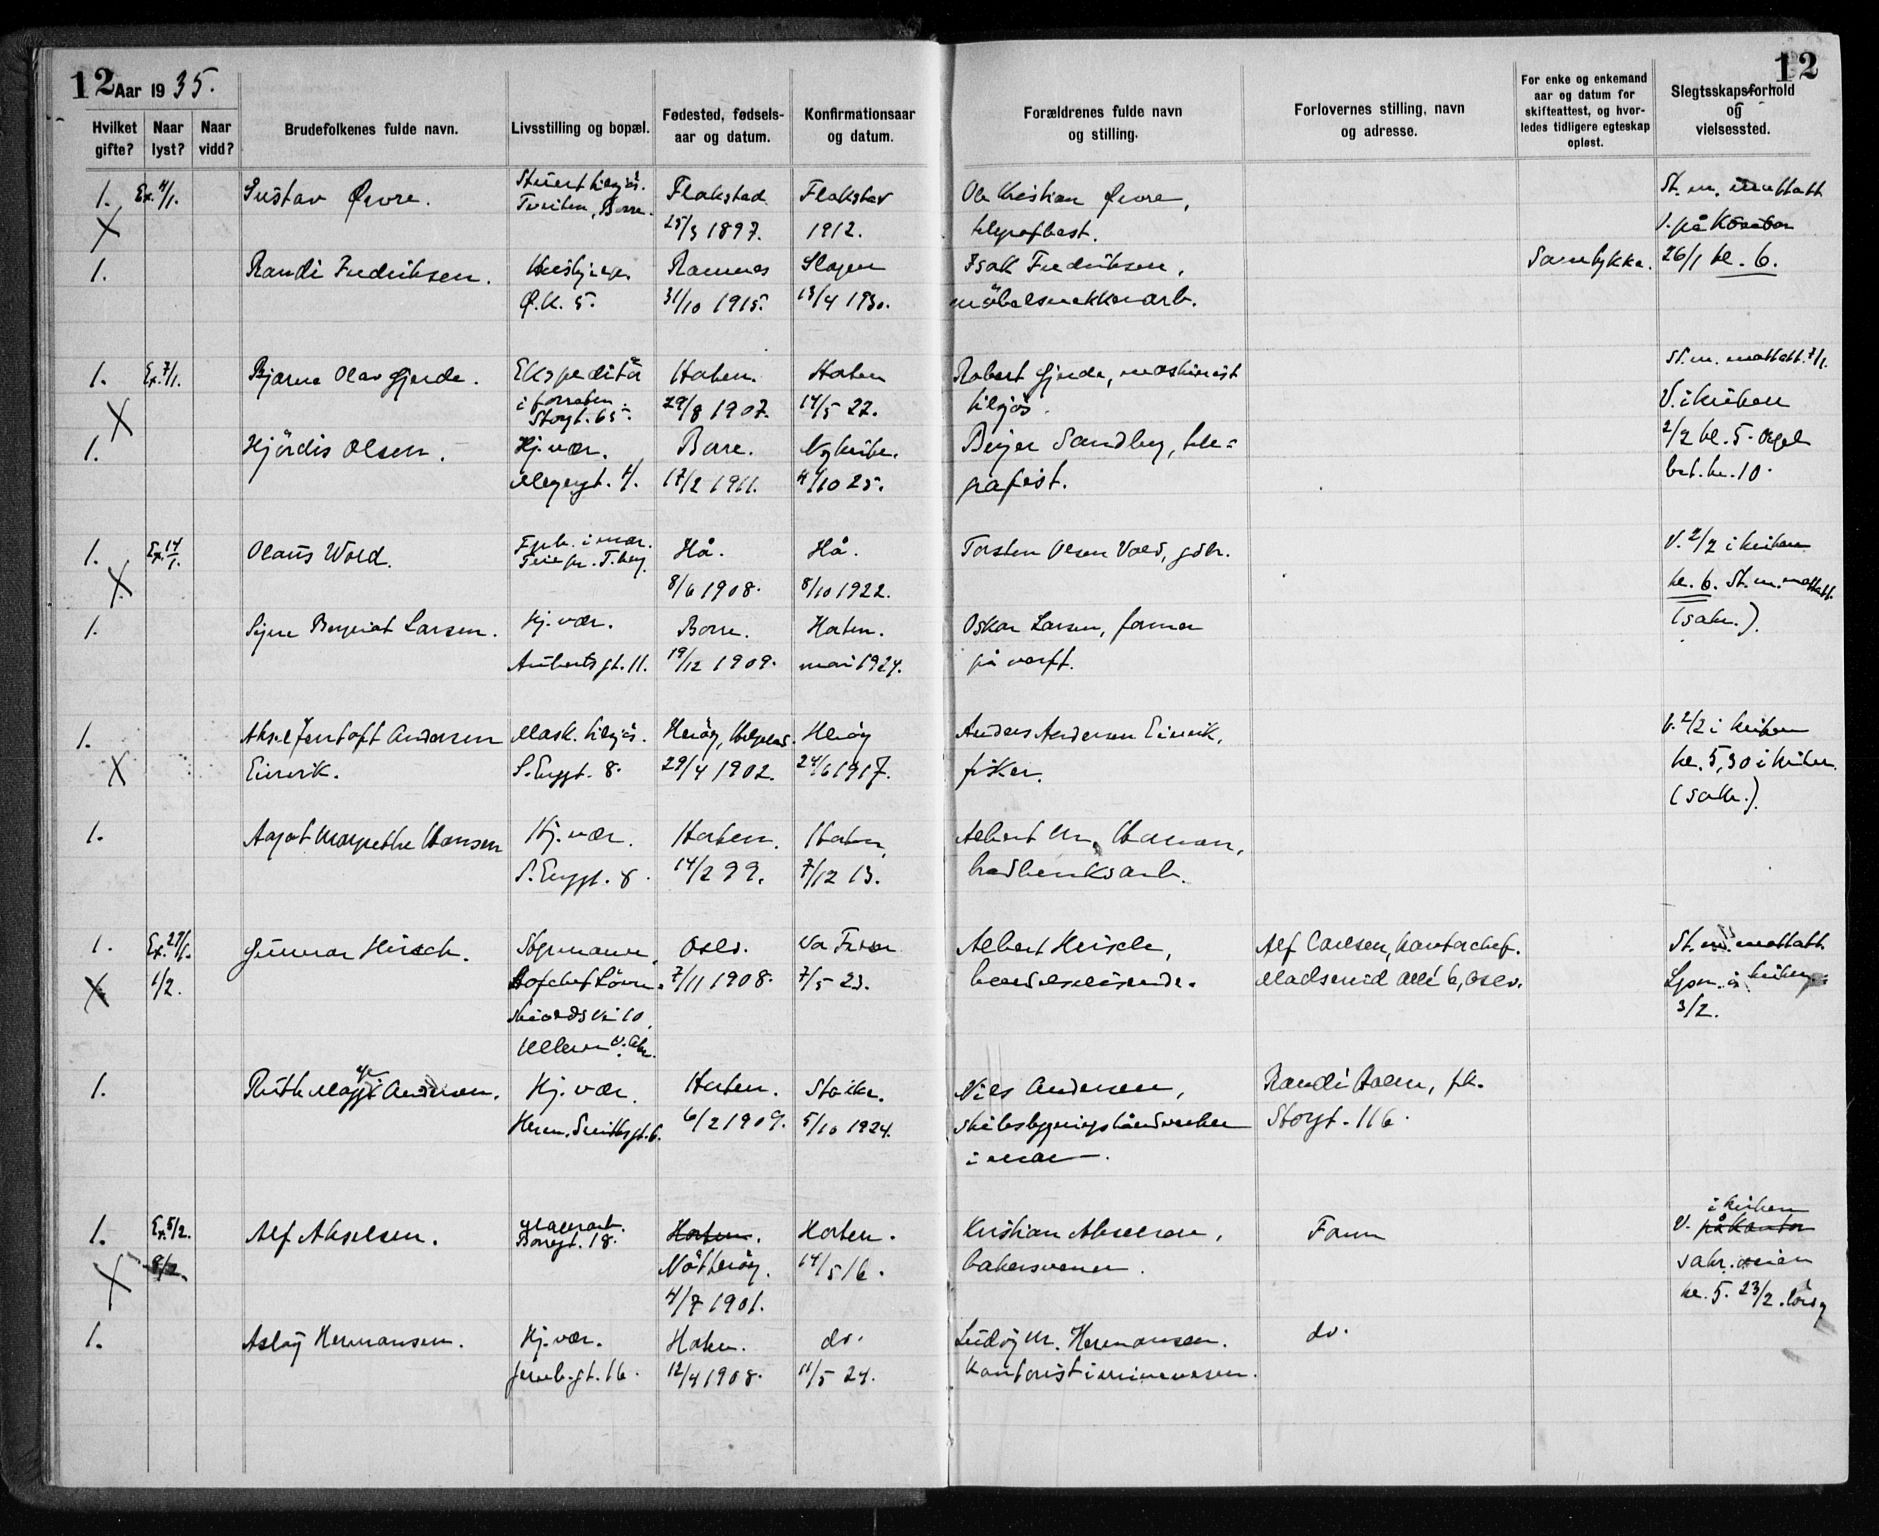 12 Aar 1935.
12
Hvilket gifte?
Naar lyst?
Naar vidd?
Brudefolkenes fulde navn.
Livsstilling og bopæl.
Fødested, fødsels-
aar og datum.
Konfirmationsaar
og datum.
Forældrenes fulde navn
og stilling.
Forlovernes stilling, navn
og adresse.
For enke og enkemand
aar og datum for
skifteattest, og hvor-
ledes tidligere egteskap
opløst.
Slegtsskapsforhold
og
vielsessted.
1. Ex. 4/1. Gustav Øvre. Stuert tilsjøs. Flakstad Flakstad Ole Kristian Øvre, St. m. mottatt
X Borre. 25/3 1897. 1912. telegrafbest. V. på Kontor
1. Randi Fredriksen. Ramnes Slagen Isak Fredriksen, 26/1 kl. 6.
Ø.K. 5. 31/10 1915. 13/4 1930. møbelsnekkerarb.
1. Ex. 7/1. Bjarne Olav Gjerde. Ekspeditør Horten. Horten Robert Gjerde, maskinist St. m. mottatt. 7/1.
X i forretn. Storgt. 65. 29/8 1907. 14/5 22. tilsjøs. V. i kirken
1. Hjördis Olsen. Hj. vær. Borre. Nykirke. Birger Sandberg, tele= 2/2 kl. 5. Orgel
17/2 1911. 4/10 25. grafist. bet. kr. 10.
1. Ex. 14/1. Olaus Wold. Hå. Hå. Torsten Olsen Vold, gdbr. V. 2/2 i kirken
X 8/6 1908. 8/10 1922. kl. 6. St. m. mottatt.
1. Signe Larsen. Hj. vær. Borre. Horten. Oskar Larsen, former (sakr.).
Aubertsgt. 11. 19/12 1909. mai 1924. på verft.
1. Aksel Jentoft Andersen Mask. tilsjøs. Herøy, Helgeland. Herøy Anders Andersen Eiervik, V. 2/2 i kirken
X Eiervik. S. Enggt. 8. 29/4 1902. 24/6 1917. fisker. kl. 5,30 i kirken.
(sakr.).
1. Aagot Margrethe Hansen Hj. vær. Horten. Horten, Albert M. Hansen,
S. Enggt. 8. 14/2 99. 7/12 13.
1. Ex. 29/1. Gunnar Hirsch. Oslo. Vor Frelser Albert Hirsch, Alf Carlsen, kontorchef. St. m. mottatt.
X 1/2. Hofchef Løven- 7/11 1908. 7/5 23. handelsreisende. Madserud allé 6, Oslo.
skioldsvei 10, 3/2.
Ullern v. Oslo.
1. Ruth Andersen. Hj. vær. Horten. Stokke. Nils Andersen, Randi Aalen, frk.
Herm. Smithsgt. 6. 6/2 1909. 5/10 1924. skibsbygningshåndverker Storgt. 116.
i mar.
i kirken
1. Ex. 5/2. Alf Akselsen. Malerarb. Horten. Horten. Kristian Akselsen, Form V. på Kontor
X 8/2. Borregt. 18. Nøtterøy. 14/5 16. bakersvenn. sakr.
4/7 1901. kl. 5. 23/2.
1. Aslaug Hermansen. Hj. vær. Horten. do. Ludvig M. Hermansen. do.
Jernb. gt. 16. 12/4 1908. 11/5 24. kontorist i minevesen.